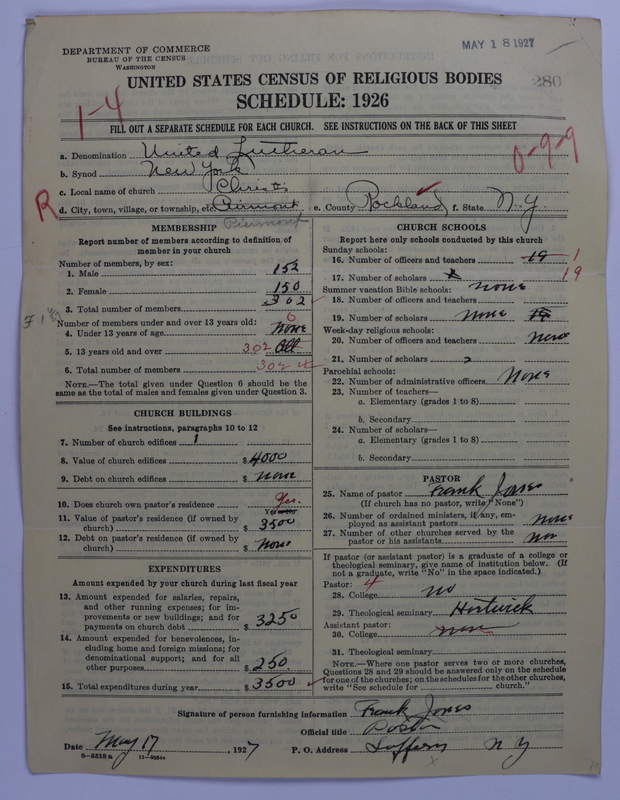 DEPARTMENT OF COMMERCE
BUREAU OF THE CENSUS
WASHINGTON
MAY 18 1927
UNITED STATES CENSUS OF RELIGIOUS BODIES
280
SCHEDULE: 1926
1-4
FILL OUT A SEPARATE SCHEDULE FOR EACH CHURCH. SEE INSTRUCTIONS ON THE BACK OF THIS SHEET
0-9-9
a. Denomination United Lutheran
b. Synod New York
c. Local name of church Christ
R
d. City, town, village, or township, etc. Airmont e. County Rockland f. State N.Y
Piermont
MEMBERSHIP
Report number of members according to definition of
member in your church
Number of members, by sex:
1. Male 152
2. Female 150
3. Total number of members 302
Number of members under and over 13 years old:
4. Under 13 years of age None 0
5. 13 years old and over 302 All
6. Total number of members 302
NOTE.—The total given under Question 6 should be the
same as the total of males and females given under Question 3.
CHURCH BUILDINGS
See instructions, paragraphs 10 to 12
7. Number of church edifices 1
8. Value of church edifices $ 4000
9. Debt on church edifices $ none
10. Does church own pastor's residence Yes.
11. Value of pastor's residence (if owned by
church) $ 3500
12. Debt on pastor's residence (if owned by
church) $ none
EXPENDITURES
Amount expended by your church during last fiscal year
13. Amount expended for salaries, repairs,
and other running expenses; for im-
provements or new buildings; and for
payments on church debt $ 3250
14. Amount expended for benevolences, in-
cluding home and foreign missions; for
denominational support; and for all
other purposes $ 250
15. Total expenditures during year $ 3500
CHURCH SCHOOLS
Report here only schools conducted by this church
Sunday schools:
16. Number of officers and teachers 19 1
17. Number of scholars 19
Summer vacation Bible schools: none
18. Number of officers and teachers
19. Number of scholars none
Week-day religious schools:
20. Number of officers and teachers none
21. Number of scholars
Parochial schools:
22. Number of administrative officers None
23. Number of teachers—
a. Elementary (grades 1 to 8)
b. Secondary
24. Number of scholars—
a. Elementary (grades 1 to 8)
b. Secondary
PASTOR
25. Name of pastor Frank Jones
(If church has no pastor, write "None")
26. Number of ordained ministers, if any, em-
ployed as assistant pastors none
27. Number of other churches served by the
pastor or his assistants no
If pastor (or assistant pastor) is a graduate of a college or
theological seminary, give name of institution below. (If
not a graduate, write "No" in the space indicated.)
Pastor: 4
28. College no
29. Theological seminary Hartwick
Assistant pastor:
30. College none
31. Theological seminary
NOTE.—Where one pastor serves two or more churches,
Questions 28 and 29 should be answered only on the schedule
for one of the churches; on the schedules for the other churches,
write "See schedule for church."
Signature of person furnishing information Frank Jones
Official title Pastor
Date May 17, 1927 P. O. Address Suffern N Y
8-5518a